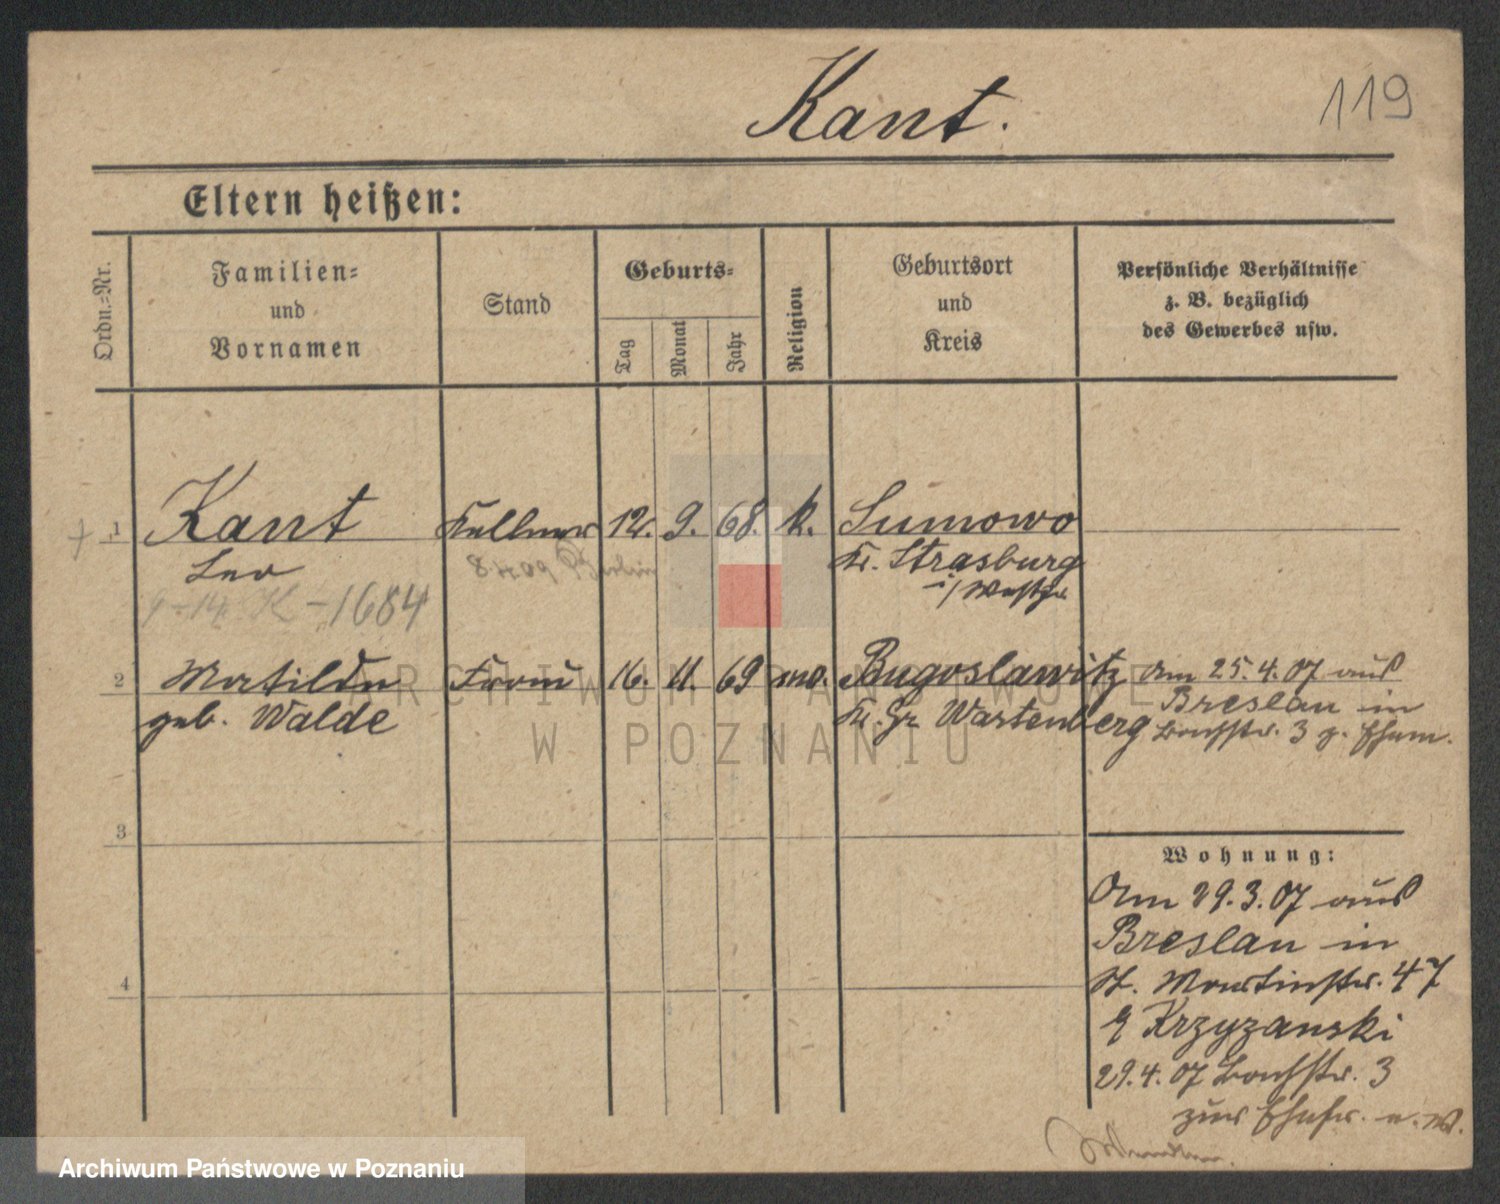 Kant.
119
Eltern heißen:
Ordn.-Nr.
Familien-
und
Vornamen
Stand
Geburts-
Tag
Monat
Jahr
Religion
Geburtsort
und
Kreis
Persönliche Verhältnisse
z. B. bezüglich
des Gewerbes usw.
1 Kant Kellner 12. 9. 68. k. Sumowo
Leo 8.4.09 Berlin Kr. Strasburg
i/Westpr
K-1684
2 Matilde Frau 16. 11. 69 Bugoslawitz Am 25.4.07 aus
geb. Walde Kr. Gr Wartenberg Breslau in
3 z. Ehem.
3
Wohnung:
Am 29.3.07 aus
Breslau in
4
St. Martinstr. 47
Krzyzanski
29.4.07 3
zur
ARCHIWUM PAŃSTWOWE
W POZNANIU
Archiwum Państwowe w Poznaniu